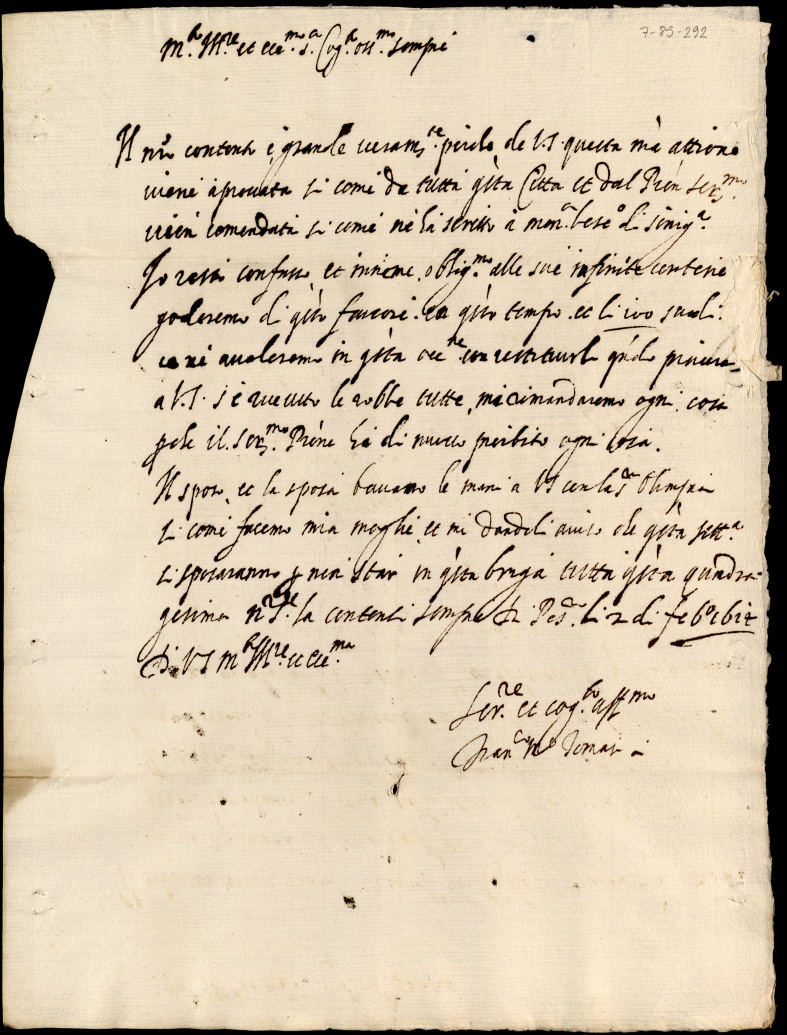 7-85-292
m.ta Ill.re et ecc.ma s.a Cog.a oss.ma sempre
Il nro contento è grande veram.te perche da V.S. questa mia attione
viene aprovata si come da tutta q̃sta Citta et dal Prẽn Ser.mo
vien comendata si come ne ha scritto a mon.r Vesc.o di sinig.a
Io resto confuso et insieme oblig.mo alle sue infinite cortesie
goderemo di q̃sto favore in q̃sto tempo et li scudi
ce ne valeremo in q̃sta occ.ne con restituirli q̃ñdo piacera
a V.S. si è riceuuto le robbe tutte, ne rimandaremo ogni cosa
perche il Ser.mo Prẽne ha di nuovo proibito ogni cosa.
Il sposo, et la sposa baciano le mani a V.S. con la S.ra Olimpia
si come facemo mia moglie et mi dandoli aviso che q̃sta sett.a
si sposaranno p non star in q̃sta briga tutta q̃sta quadra-
gesima N.S.re la contenti sempre Di Pes.o li 2 di feb.o 1612
Di V.S. m.ta Ill.re et ecc.ma
Ser.re et cog.to aff.mo
Fran.co M.a